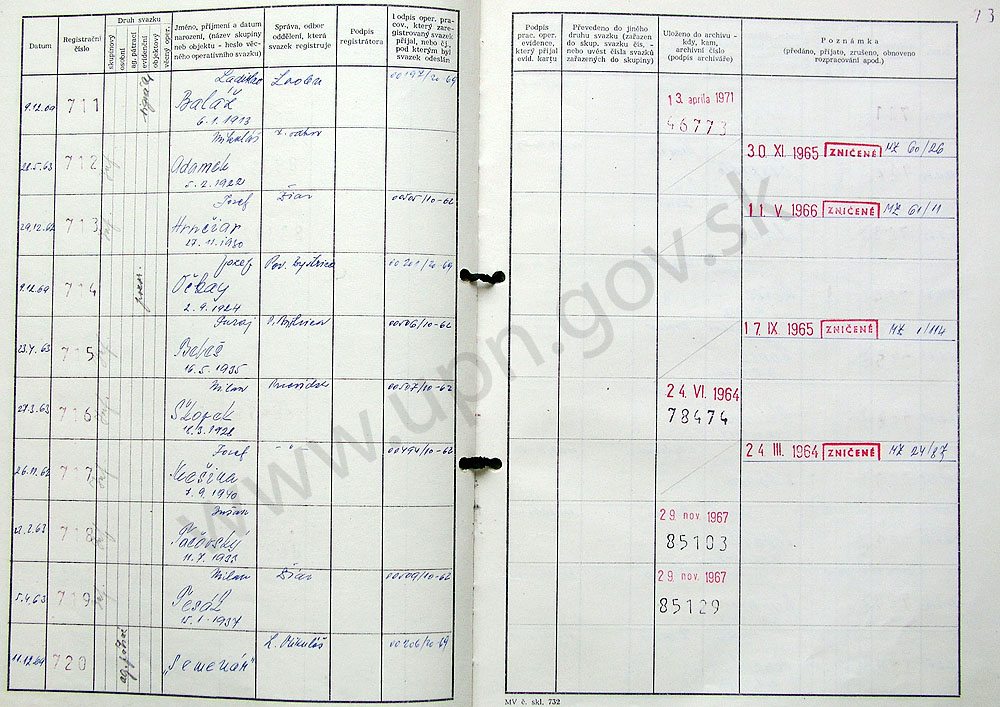 13
Datum
Registrační číslo
Druh svazku
skupinový
osobní
ag. pátrací
evidenční
objektový
věcný oper.
Jméno, příjmení a datum
narození, (název skupiny
neb objektu - heslo věc-
ného operativního svazku)
Správa, odbor
oddělení, která
svazek registruje
Podpis
registrátora
Podpis oper. pra-
cov., který zare-
gistrovaný svazek
přijal, nebo čj.,
pod kterým byl
svazek odeslán
Podpis
prac. oper.
evidence,
který přijal
evid. kartu
Převedeno do jiného
druhu svazku (zařazen
do skup. svazku čís. -
nebo uvést čísla svazků
zařazených do skupiny)
Uloženo do archivu -
kdy, kam,
archivní číslo
(podpis archiváře)
Poznámka
(předáno, přijato, zrušeno, obnoveno
rozpracování apod.)
9.12.69 711 Ladislav Zvolen 00197/20-69
Baláž
6.1.1913
13. apríla 1971
46773
28.5.63 712 Mikuláš
Adamek
5.2.1922
30. XI. 1965 ZNIČENÉ MZ 60/26
29.12.62 713 Jozef Žiar 00505/10-62
Hrnčiar
27.11.1930
11. V 1966 ZNIČENÉ MZ 61/11
9.12.69 714 Jozef Pov. Bystrica 00201/20-69
Očkay
2.9.1924
23.4.63 715 Juraj P. Bystrica 00506/10-62
Beleš
16.5.1935
17. IX. 1965 ZNIČENÉ MZ 1/114
27.3.63 716 Milan Prievidza 00507/10-62
Škorek
11.3.1928
24. VI. 1964
78474
26.11.62 717 Jozef -"- 00494/10-62
Mačina
7.9.1940
24. III. 1964 ZNIČENÉ MZ 24/87
718 Dušan
11.7.1933
29. nov. 1967
85103
5.4.63 719 Milan Žiar 00509/10-62
Tesář
15.1.1937
29. nov. 1967
85129
11.12.69 720 L. Mikuláš 00206/20-69
"Semenár"
MV č. skl. 732
www.upn.gov.sk